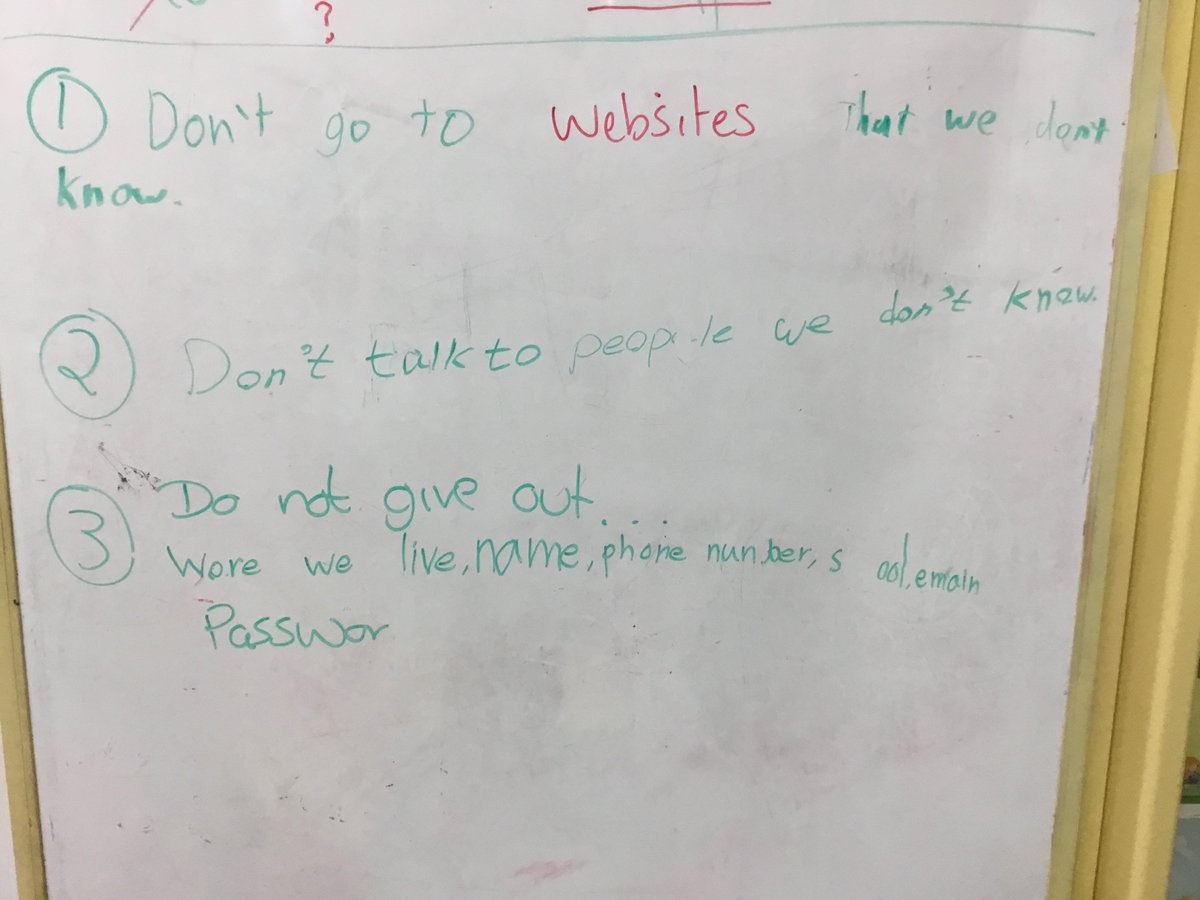 ?
① Don't go to websites that we don't
know.
② Don't talk to people we don't know.
③ Do not give out...
Wore we live, name, phone number, s ool, emain
Passwor